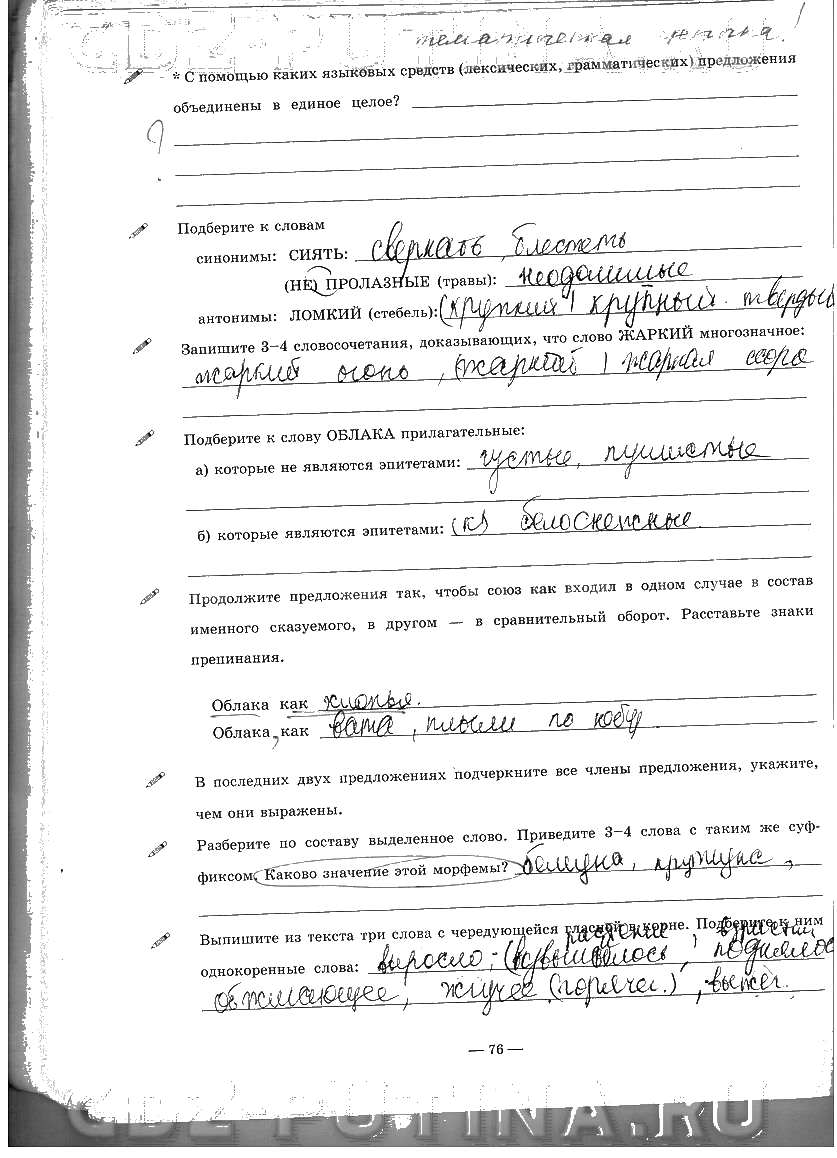 GDZ-PUTINA.RU
тематическая
* С помощью каких языковых средств (лексических, грамматических) предложения
объединены в единое целое?
?
Подберите к словам
синонимы: СИЯТЬ: сверкать, блестеть
(НЕ) ПРОЛАЗНЫЕ (травы): неодолимые
антонимы: ЛОМКИЙ (стебель): (хрупкий) крупный твердый
Запишите 3–4 словосочетания, доказывающих, что слово ЖАРКИЙ многозначное:
жаркий огонь, (жаркий) жаркая ссора
Подберите к слову ОБЛАКА прилагательные:
а) которые не являются эпитетами: густые, пушистые
б) которые являются эпитетами: (к) белоснежные
Продолжите предложения так, чтобы союз как входил в одном случае в состав
именного сказуемого, в другом — в сравнительный оборот. Расставьте знаки
препинания.
Облака как хлопья.
Облака, как вата, плыли по небу
В последних двух предложениях подчеркните все члены предложения, укажите,
чем они выражены.
Разберите по составу выделенное слово. Приведите 3–4 слова с таким же суф-
фиксом. Каково значение этой морфемы?
Выпишите из текста три слова с чередующейся гласной в корне. Подберите к ним
растение
однокоренные слова: выросло; (возвышалось) поднялось
жгучее (горячее.), выжег.
— 76 —
GDZ-PUTINA.RU